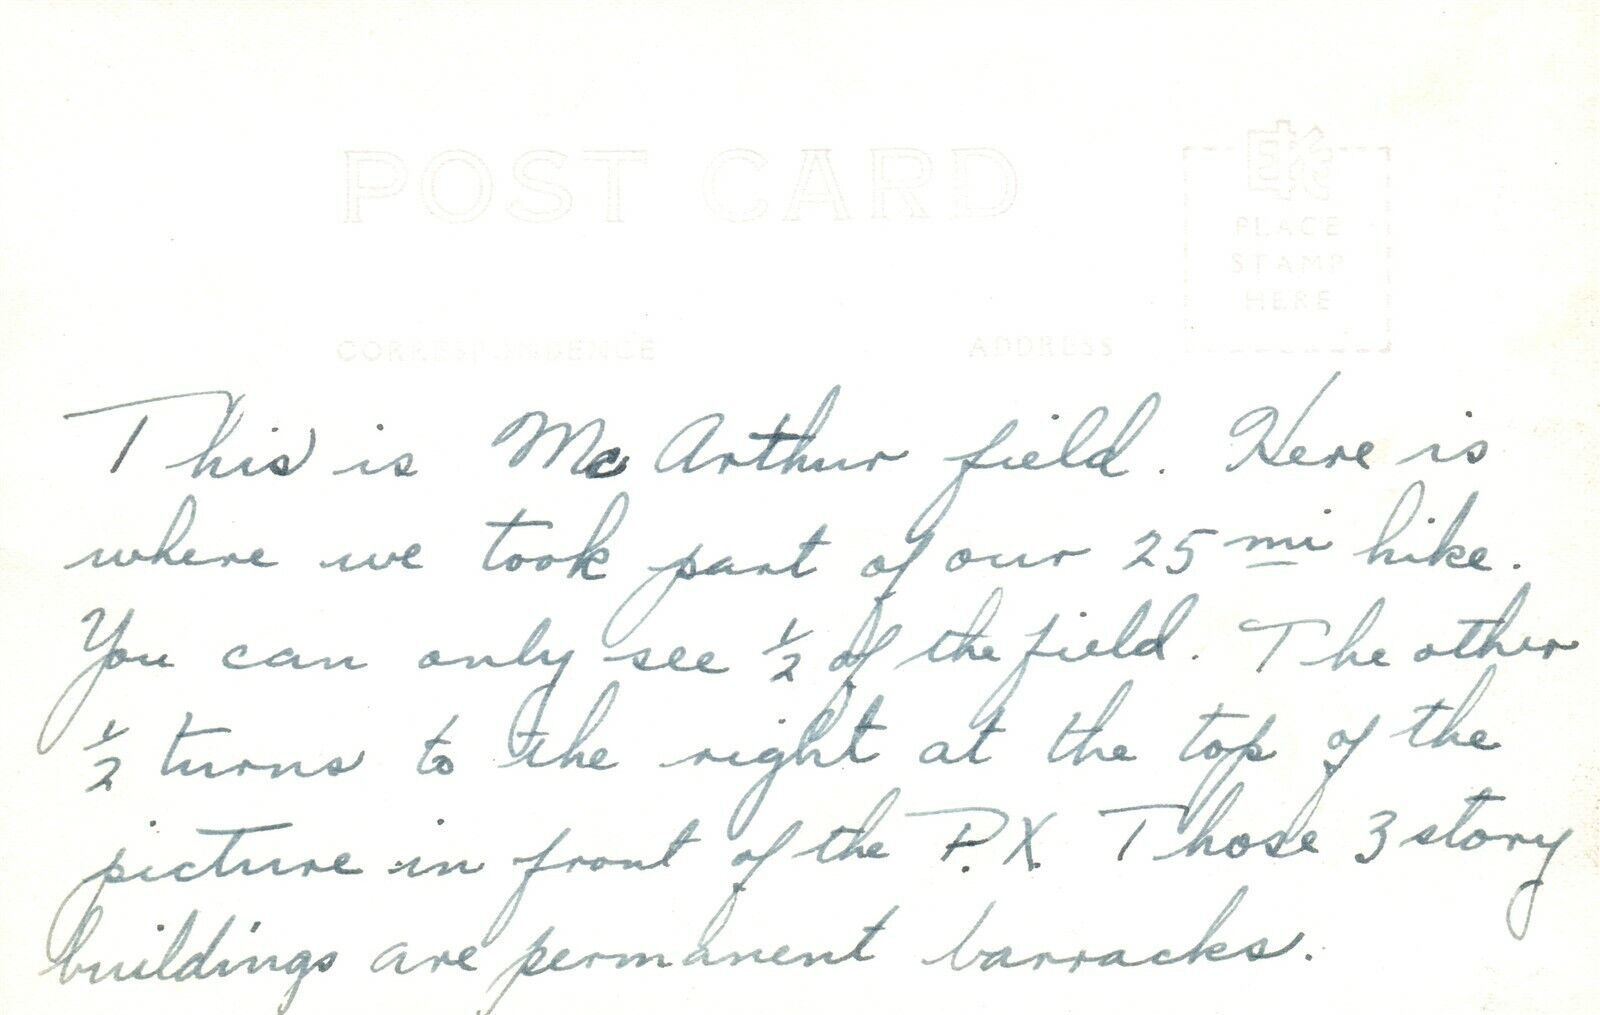 POST CARD
EKC
PLACE
STAMP
HERE
CORRESPONDENCE
ADDRESS
This is McArthur field. Here is
where we took part of our 25 mi hike.
You can only see 1/2 of the field. The other
1/2 turns to the right at the top of the
picture in front of the P.X. Those 3 story
buildings are permanent barracks.